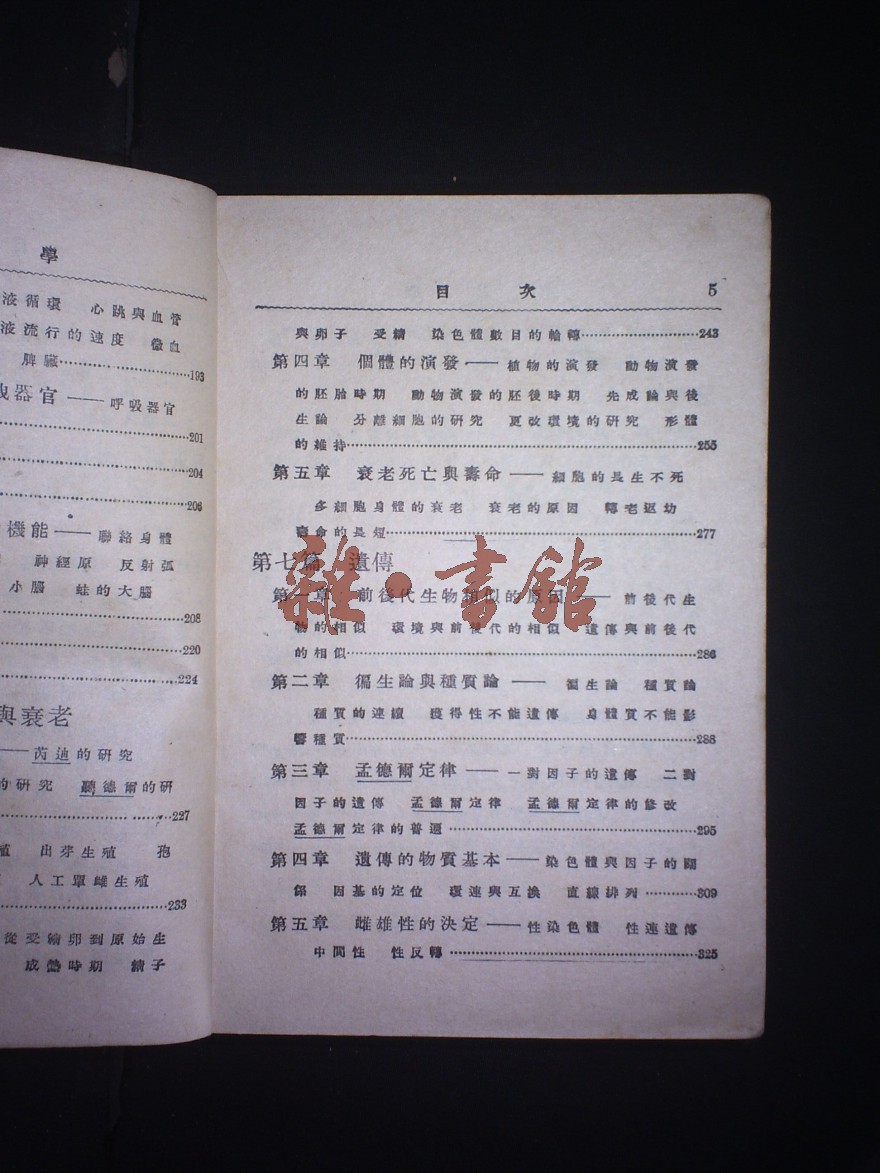 學
液循環 心跳與血管
液流行的速度 微血
脾臟……193
器官——呼吸器官
……201
……204
……206
機能——聯絡身體
神經原 反射弧
小腦 蛙的大腦
……208
……220
……224
與衰老
——芮迪的研究
的研究 聽德爾的研
……227
殖 出芽生殖 孢
人工單雌生殖
……233
從受精卵到原始生
成熟時期 精子
目次 5
與卵子 受精 染色體數目的輪轉……243
第四章 個體的演發——植物的演發 動物演發
的胚胎時期 動物演發的胚後時期 先成論與後
生論 分離細胞的研究 更改環境的研究 形體
的維持……255
第五章 衰老死亡與壽命——細胞的長生不死
多細胞身體的衰老 衰老的原因 轉老返幼
壽命的長短……277
第七篇 遺傳
第一章 前後代生物類似的原因——前後代生
物的相似 環境與前後代的相似 遺傳與前後代
的相似……286
第二章 徧生論與種質論——徧生論 種質論
種質的連續 獲得性不能遺傳 身體質不能影
響種質……288
第三章 孟德爾定律——一對因子的遺傳 二對
因子的遺傳 孟德爾定律 孟德爾定律的修改
孟德爾定律的普遍……295
第四章 遺傳的物質基本——染色體與因子的關
係 因基的定位 環連與互換 直線排列……309
第五章 雌雄性的決定——性染色體 性連遺傳
中間性 性反轉……325
雜·書館